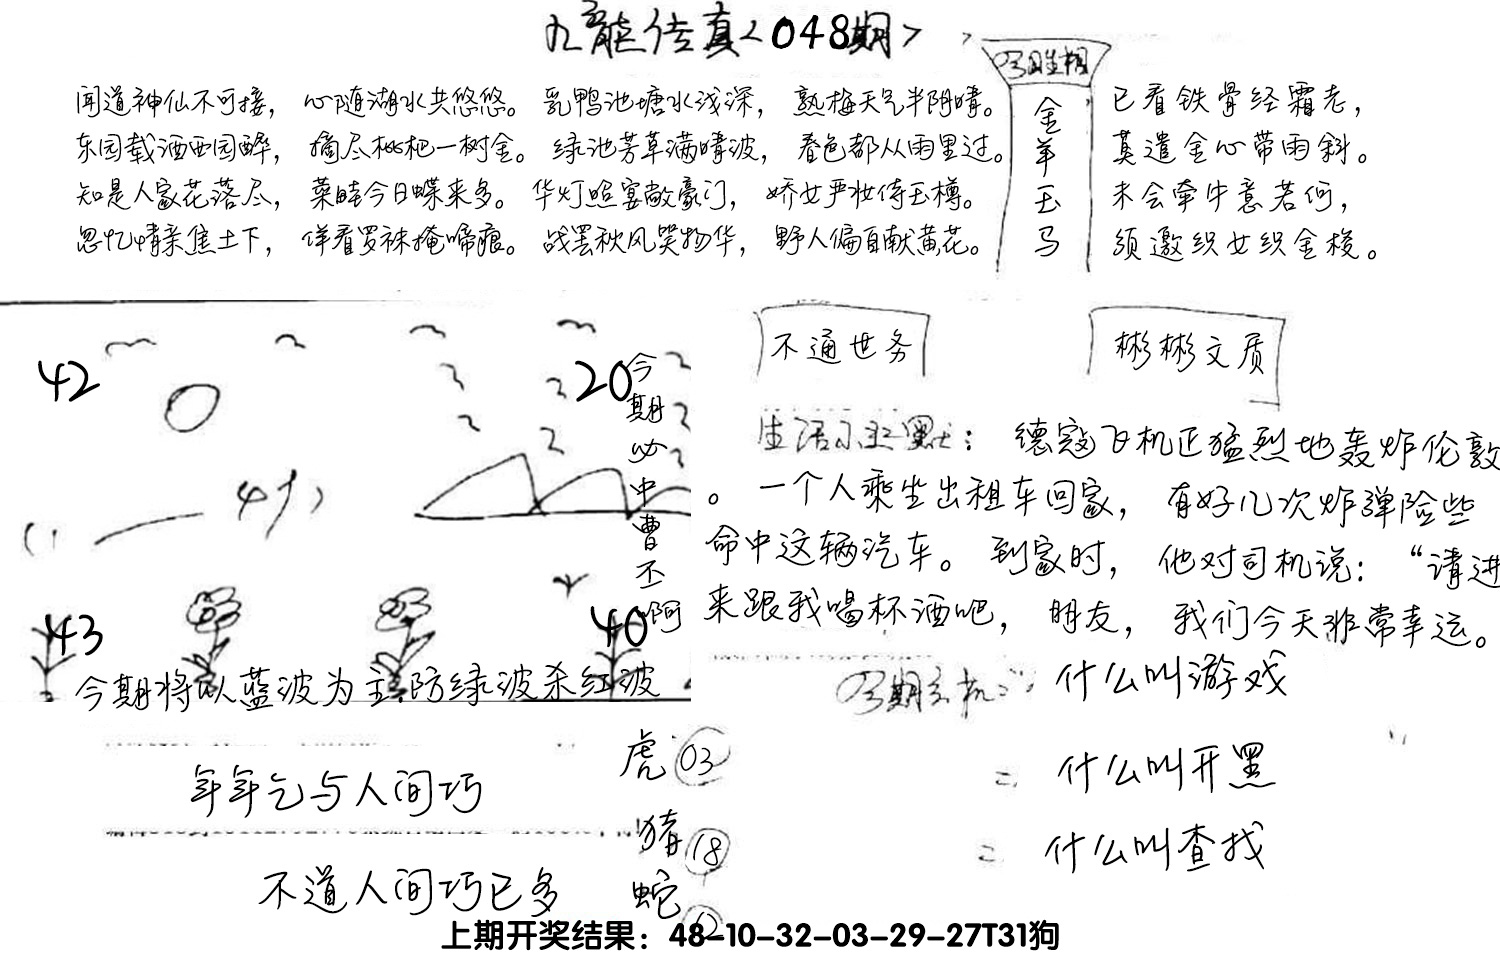 九龙传真<048期>
闻道神仙不可接，心随湖水共悠悠。乳鸭池塘水浅深，熟梅天气半阴晴。
东园载酒西园醉，摘尽枇杷一树金。绿池芳草满晴波，春色都从雨里过。
知是人家花落尽，菜畦今日蝶来多。华灯照宴敞豪门，娇女严妆侍玉樽。
忽忆情亲焦土下，佯看罗袜掩啼痕。战罢秋风笑物华，野人偏自献黄花。
金羊玉马
已看铁骨经霜老，
莫遣金心带雨斜。
未会牵牛意若何，
须邀织女织金梭。
42
20
43
40
今期必中曹丕啊
今期将以蓝波为主防绿波杀红波
不通世务
彬彬文质
生活幽默：德寇飞机正猛烈地轰炸伦敦
。一个人乘坐出租车回家，有好几次炸弹险些
命中这辆汽车。到家时，他对司机说：“请进
来跟我喝杯酒吧，朋友，我们今天非常幸运。
今期玄机
什么叫游戏
什么叫开黑
什么叫查找
年年乞与人间巧
不道人间巧已多
虎 03
猪 18
蛇
上期开奖结果：48-10-32-03-29-27T31狗